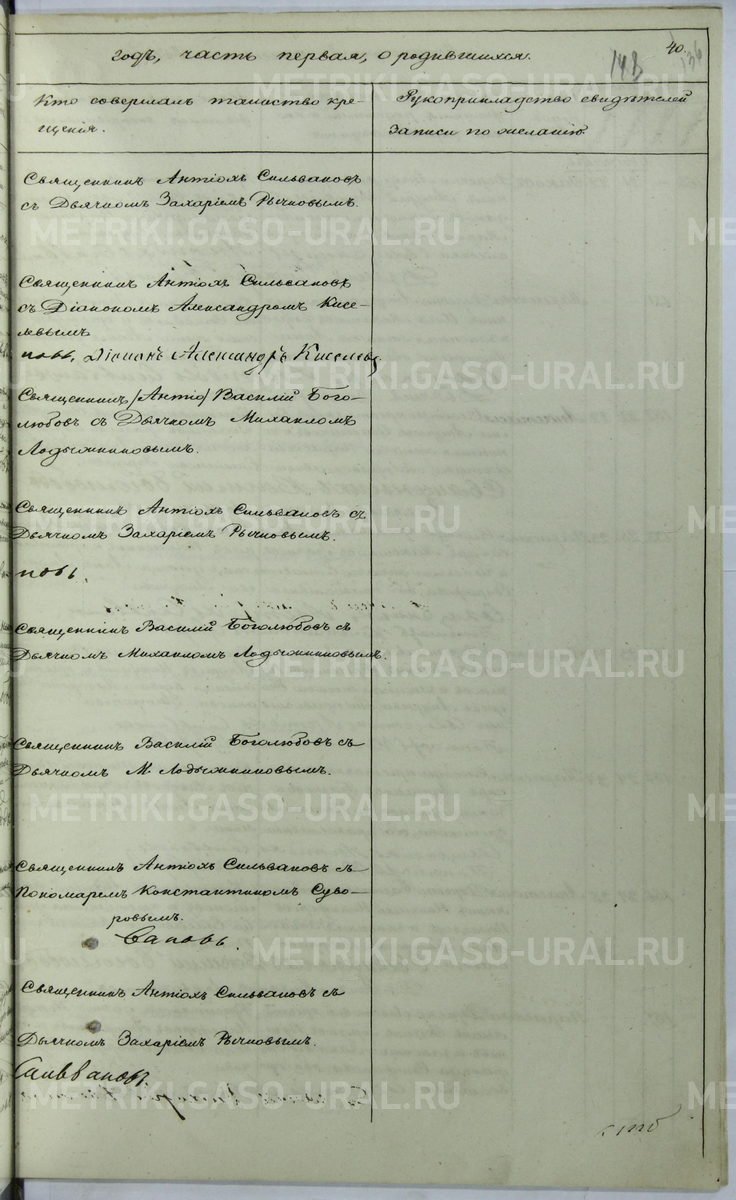 годъ, часть первая, о родившихся.
40.
148
136
Кто совершалъ таинство кре-
щенія.
Рукоприкладство свидѣтелей
записи по желанію.
Священникъ Антіохъ Сильвановъ
съ Дьячкомъ Захаріемъ Рычковымъ.
METRIKI.GASO-URAL.RU
Священникъ Антіохъ Сильвановъ
съ Діакономъ Александромъ Кисе-
левымъ
новъ, Діаконъ Александръ Киселевъ
METRIKI.GASO-URAL.RU
Священникъ /Антіо/ Василій Бого-
любовъ съ Дьячкомъ Михаиломъ
Лодыжниковымъ.
Священникъ Антіохъ Сильвановъ съ
METRIKI.GASO-URAL.RU
Дьячкомъ Захаріемъ Рычковымъ.
новъ.
Священникъ Василій Боголюбовъ съ
Дьячкомъ Михаиломъ Лодыжниковымъ.
METRIKI.GASO-URAL.RU
Священникъ Василій Боголюбовъ съ
Дьячкомъ М. Лодыжниковымъ.
METRIKI.GASO-URAL.RU
Священникъ Антіохъ Сильвановъ съ
Пономаремъ Константиномъ Суво-
ровымъ.
METRIKI.GASO-URAL.RU
Священникъ Антіохъ Сильвановъ съ
Дьячкомъ Захаріемъ Рычковымъ.
Сильвановъ.
METRIKI.GASO-URAL.RU